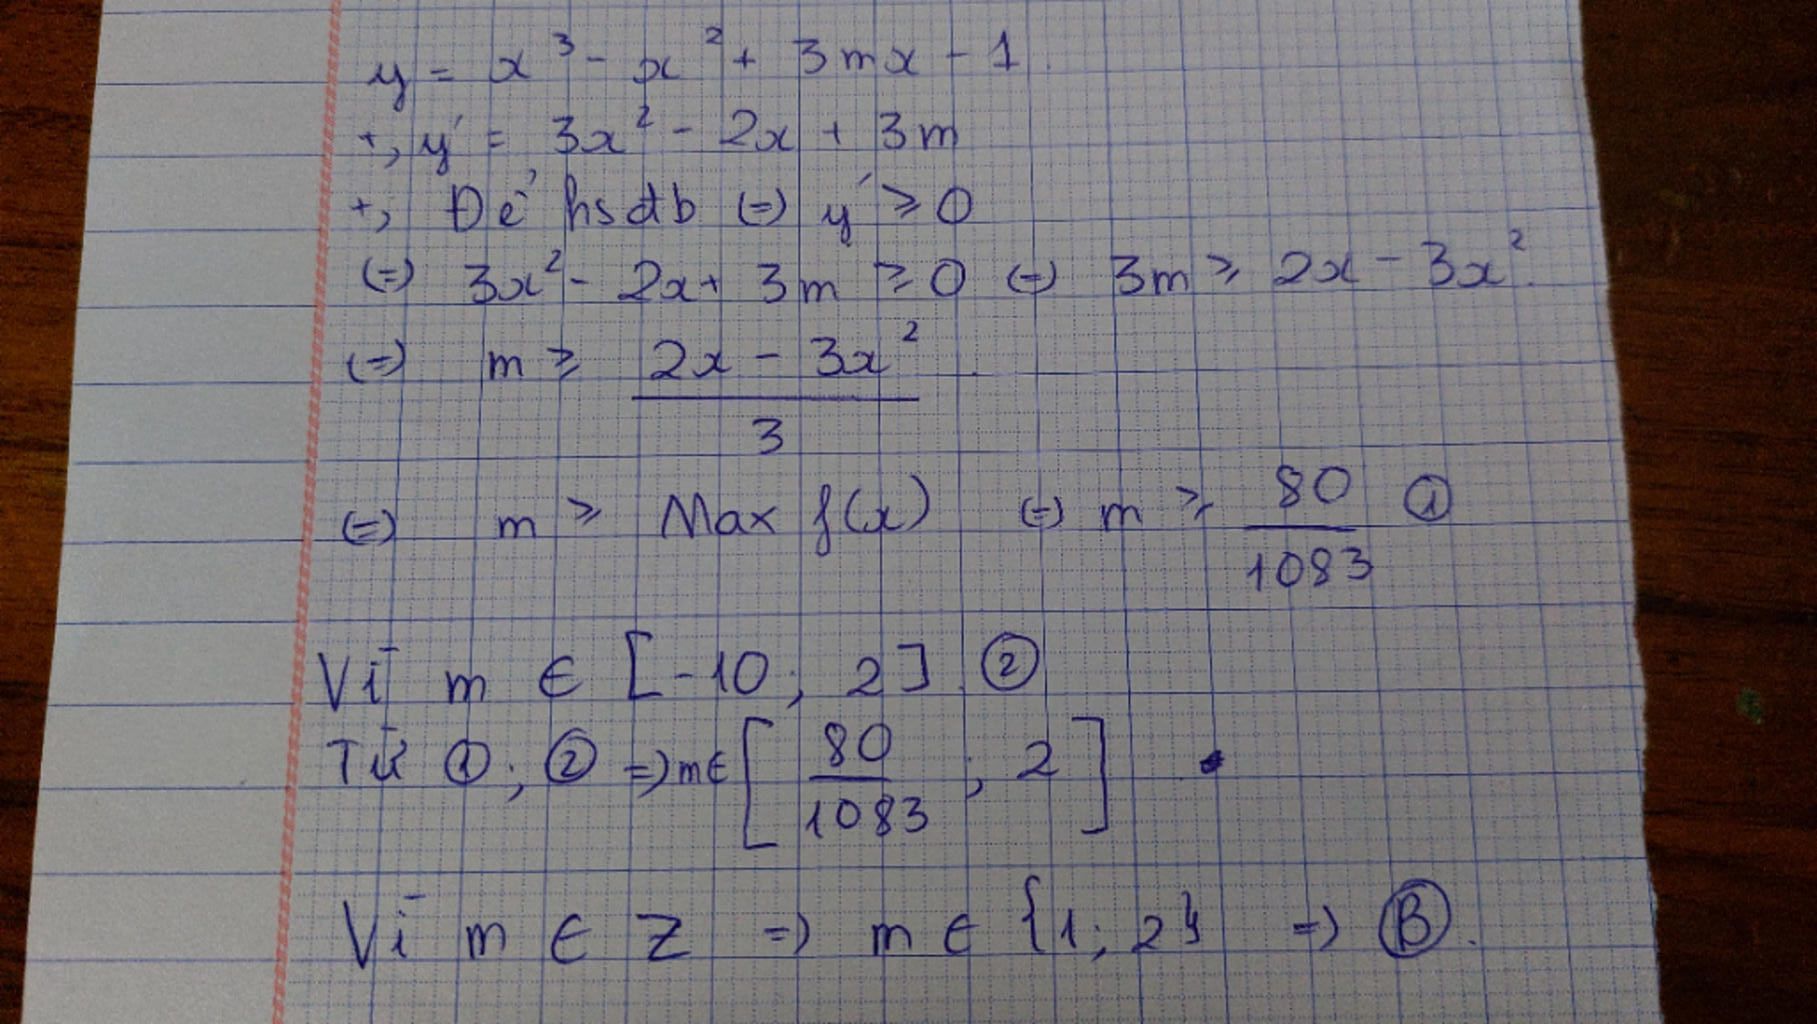 y = x³ - x² + 3mx - 1.
+, y' = 3x² - 2x + 3m
+, Để hsđb (=) y' ≥ 0
(=) 3x² - 2x + 3m ≥ 0 (=) 3m ≥ 2x - 3x².
(=) m ≥ (2x - 3x²)/3.
(=) m ≥ Max f(x) (=) m ≥ 80/1083 ①
Vì m ∈ [-10; 2] ②
Từ ①; ② =) m ∈ [80/1083; 2].
Vì m ∈ Z =) m ∈ {1; 2} =) Ⓑ.